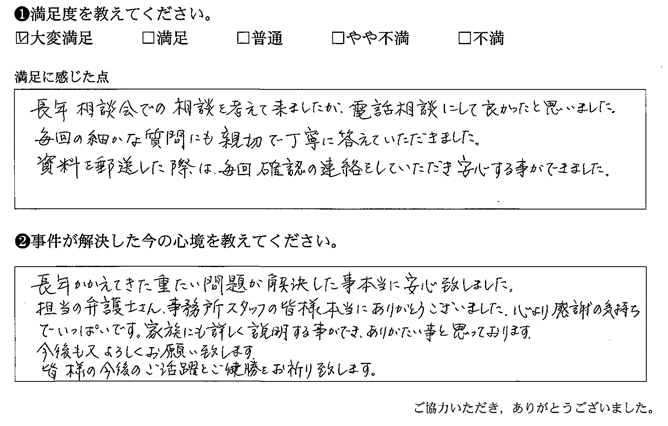 ❶満足度を教えてください。
☑大変満足 □満足 □普通 □やや不満 □不満
満足に感じた点
長年相談会での相談を考えて来ましたが、電話相談にして良かったと思いました。
毎回の細かな質問にも親切で丁寧に答えていただきました。
資料を郵送した際は、毎回確認の連絡をしていただき安心する事ができました。
❷事件が解決した今の心境を教えてください。
長年かかえてきた重たい問題が解決した事本当に安心致しました。
担当の弁護士さん、事務所スタッフの皆様本当にありがとうございました、心より感謝の気持ち
でいっぱいです。家族にも詳しく説明する事ができ、ありがたい事と思っております。
今後も又よろしくお願い致します
皆様の今後のご活躍とご健勝をお祈り致します。
ご協力いただき，ありがとうございました。